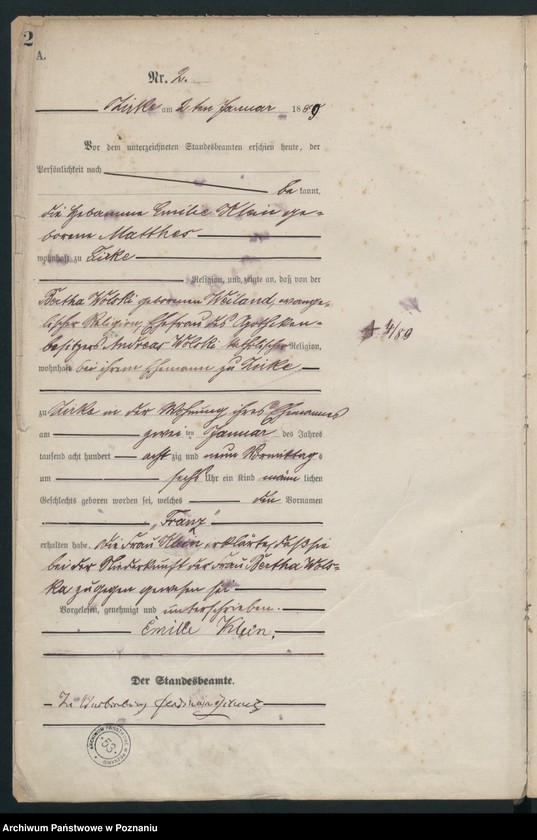 2
A.
Nr. 2.
Zirke am 2ten Januar 1889
Vor dem unterzeichneten Standesbeamten erschien heute, der
Persönlichkeit nach
bekannt,
die Hebamme Emilie Klein ge-
borene Matthes
wohnhaft zu Zirke
Religion, und zeigte an, daß von der
Bertha Wolski geborenen Weiland, evange-
lischer Religion, Ehefrau des Apotheken-
besitzers Andreas Wolski katholischer Religion,
wohnhaft bei ihrem Ehemann zu Zirke
zu Zirke in der Wohnung ihres Ehemannes
am zwei ten Januar des Jahres
tausend acht hundert acht zig und neun Vormittags
um sechs Uhr ein Kind männlichen
Geschlechts geboren worden sei, welches den Vornamen
„Franz"
erhalten habe. Die Frau Klein erklärte, daß sie
bei der Niederkunft der Frau Bertha Wols-
ka zugegen gewesen sei
Vorgelesen, genehmigt und unterschrieben.
Emilie Klein.
Der Standesbeamte.
ARCHIWUM PAŃSTWOWE W POZNANIU
53
Archiwum Państwowe w Poznaniu